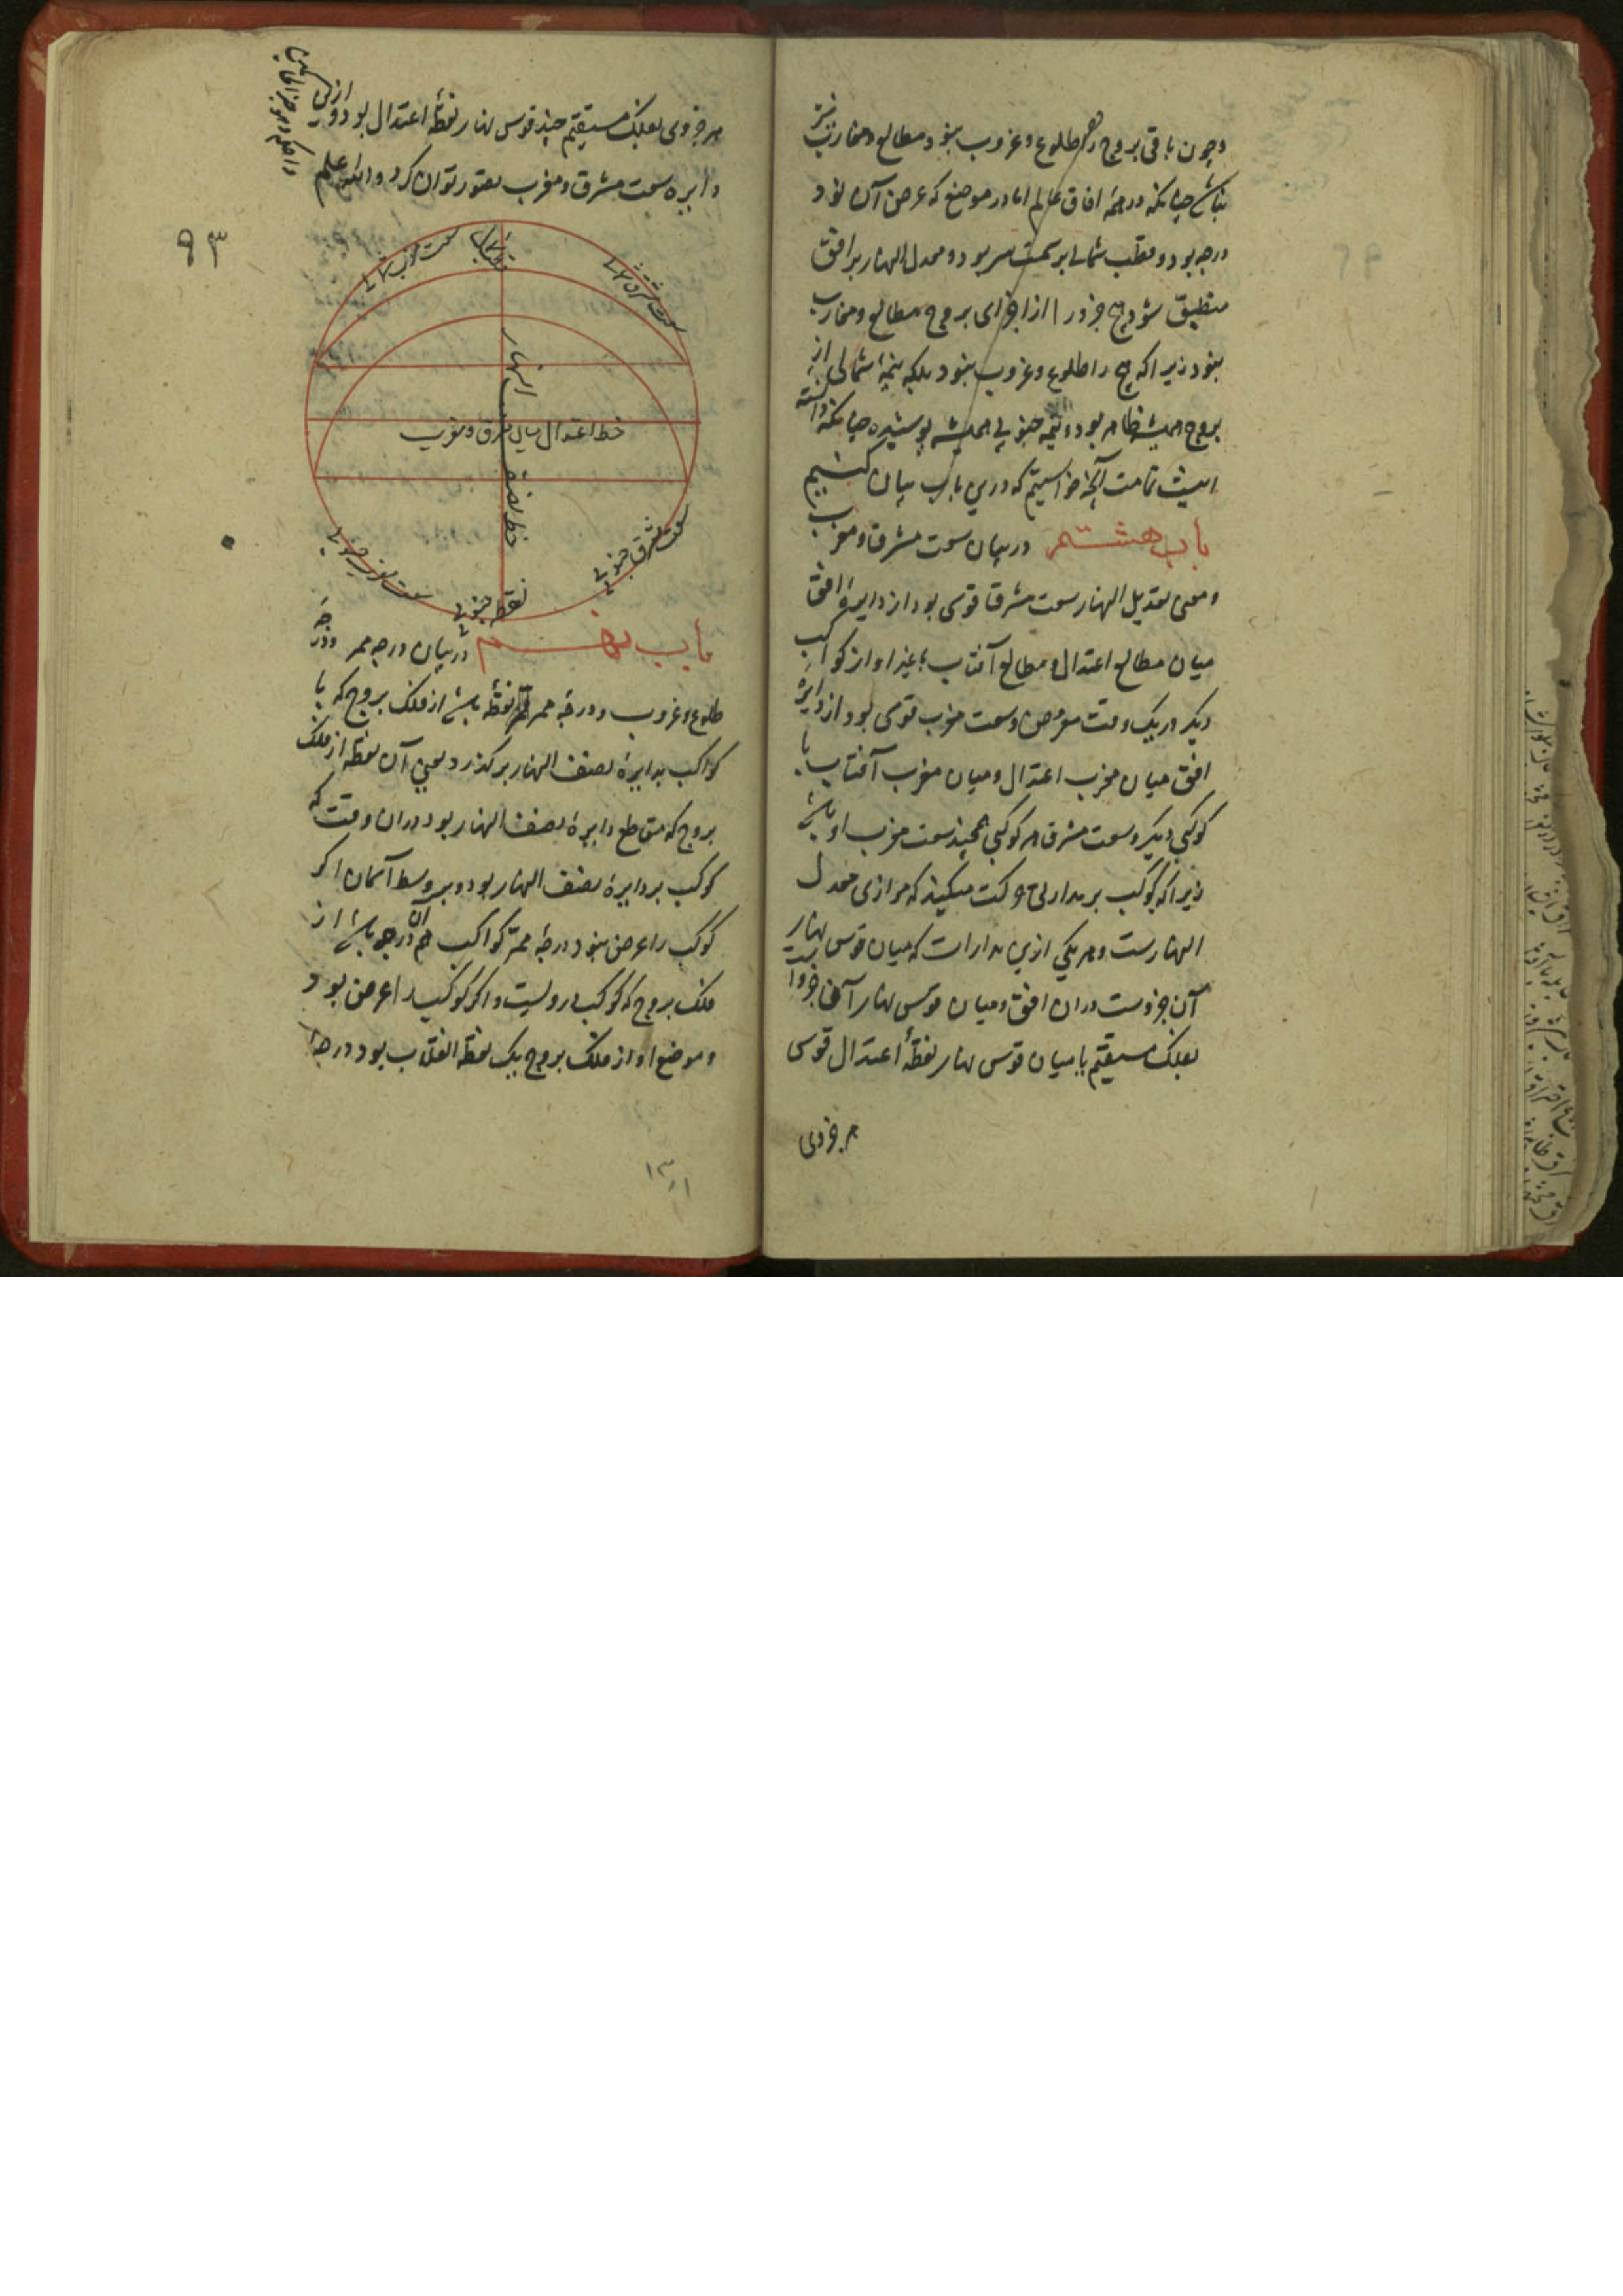 وچون باقی بروج را هم طلوع وغروب نبود مطالع ومغارب نیز
نباشد چنانکه در همه افاق عالم اما در موضع که عرض آن نود
درجه بود و قطب شمالی بر سمت سر بود و معدل النهار بر افق
منطبق شود هیچ جزو را از اجزای بروج مطالع ومغارب
نبود زیرا که هیچ را طلوع وغروب نبود بلکه نیمهٔ شمالی از
بروج همیشه ظاهر بود و نیمه جنوبی همیشه پوشیده چنانکه دانسته
اینست تمامت آنچه خواستیم که درین باب بیان کنیم
باب هشتم در بیان سعت مشرق ومغرب
ومعنی تعدیل النهار سعت مشرق قوسی بود از دایرهٔ افق
میان مطالع اعتدال ومطالع آفتاب یا غیر او از کواکب
دیگر در یک وقت مفروض وسعت مغرب قوسی بود از دایرهٔ
افق میان مغرب اعتدال ومیان مغرب آفتاب یا
کوکبی دیگر وسعت مشرق هر کوکبی همچند سعت مغرب او باشد
زیرا که کوکب بر مداری حرکت میکند که موازی معدل
النهارست وهر یکی ازین مدارات که میان قوس نهار
آن جزوست دران افق ومیان قوس نهار آن جزو
بفلک مستقیم یا میان قوس نهار نقطهٔ اعتدال قوس
هر جزوی
هر جزوی بفلک مستقیم چند قوس نهار نقطهٔ اعتدال بود و ازین
دایره سعت مشرق ومغرب تصور توان کرد والله اعلم
۹۳
سعت مغرب شمالی
نقطهٔ شمال
سعت مشرق شمالی
خط نصف النهار
خط اعتدال میان مشرق ومغرب
سعت مغرب جنوبی
نقطه جنوبی
سعت مشرق جنوبی
باب نهم در بیان درجه ممر ودرجه
طلوع وغروب ودرجهٔ ممر نقطه باشد از فلک بروج که با
کواکب بدایرهٔ نصف النهار برگذرد یعنی آن نقطه از فلک
بروج که مقاطع دایرهٔ نصف النهار بود دران وقت که
کوکب بر دایرهٔ نصف النهار بود وبر وسط آسمان اگر
کوکب را عرض نبود درجهٔ ممر کواکب هم آن درجه باشد از
فلک بروج که کوکب دروست واگر کوکب را عرض بود
وموضع او از فلک بروج یک نقطه انقلاب بود درجهٔ